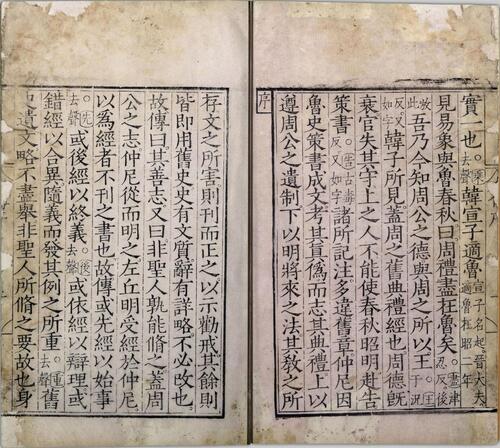 實一也。乘去聲韓宣子適魯宣子名起晉大夫適魯在昭二年
見易象與魯春秋曰周禮盡在魯矣。盡津忍反後
放此吾乃今知周公之德與周之所以王。王于況
反又如字韓子所見蓋周之舊典禮經也周德旣
衰官失其守上之人不能使春秋昭明赴告
策書。告古毒反又如字諸所記注多違舊章仲尼因
魯史策書成文考其真偽而志其典禮上以
遵周公之遺制下以明將來之法其敎之所
序
存文之所害則刊而正之以示勸戒其餘則
皆即用舊史史有文質辭有詳略不必改也
故傳曰其善志又曰非聖人孰能脩之蓋周
公之志仲尼從而明之左丘明受經於仲尼
以爲經者不刊之書也故傳或先經以始事
。先去聲或後經以終義。後去聲或依經以辯理或
錯經以合異隨義而發其例之所重。重去聲舊
史遺文略不盡舉非聖人所脩之要故也身